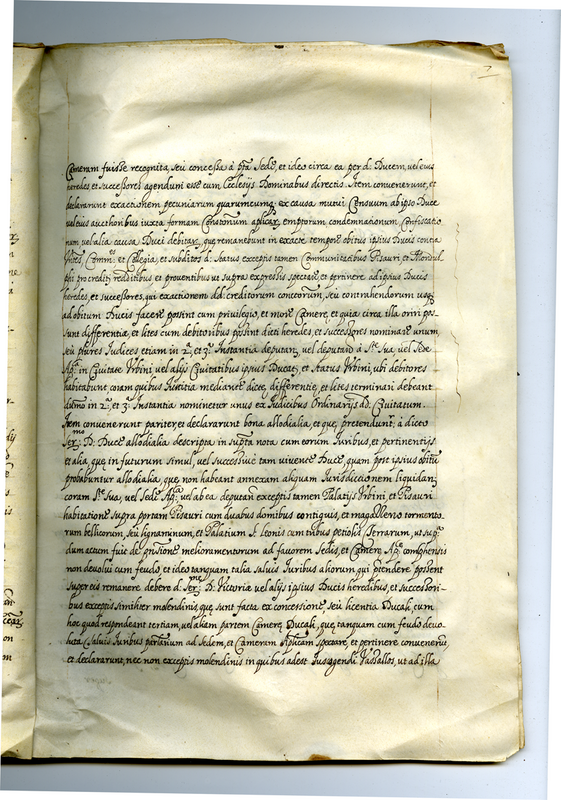 7
Cameram fuisse recognita, seu concessa à pta Sede, et ideo circa ea per d. Ducem, vel eius
heredes et successores agendum esse cum Ecclesijs Dominabus directis. Item convenerunt, et
declararunt exactionem pecuniarum quarumcunq; ex causa mutui Censuum ab ipso Duce
vel eius authoribus iuxta formam emptorum condemnationum Confiscatio
num, vel alia causa Duci debitar, que remanebunt in exacte tempore obitus ipsius Ducis contra
Comm. et Collegia, et subditos d. Status exceptis tamen Communitatibus Pisauri et
pro creditis redditibus et proventibus ut supra expressis spectare, et pertinere ad ipsius Ducis
heredes, et successores, qui exactionem dd. creditorum seu contrahendorum usq;
ad obitum Ducis facere possint cum privilegio, et more Camere, et quia circa illa oriri pos-
sunt differentie, et lites cum debitoribus possint dicti heredes, et successores nominare unum,
seu plures Iudices etiam in 2a, et 3a Instantia deputan, vel deputand à S.te Sua, vel Sede
Ap.ca in Civitate Urbini, vel alijs Civitatibus ipsius Ducat, et Status Urbini, ubi debitores
habitabunt coram quibus Iustitia mediante dicte differentie, et lites terminari debeant
dumo in 2a, et 3a Instantia nominetur unus ex Iudicibus Ordinarijs dd. Civitatum.
Item convenerunt pariter, et declararunt bona allodialia, et que, pretendunt à dicto
Ser.mo D. Duce allodialia descripta, in supta nota cum eorum Iuribus, et pertinentijs
et alia, que in futurum simul, vel successive tam vivente Duce, quam post ipsius obitu
probabuntur allodialia, que non habeant annexam aliquam Iurisdictionem liquidan
coram S.te Sua, vel Sede Ap.ca vel ab ea deputan exceptis tamen Palatijs Urbini, et Pisauri
habitatione supra portam Pisauri cum duabus domibus contiguis, et magazeno tormento
rum bellicorum, seu lignaminum, et Palatium S. Leonis cum tribus petiolis Terrarum, ut sup.
dum actum fuit de melioramentorum ad favorem Sedis, et Camere Ap.ce
non devolvi cum feudo et ideo tanquam talia salvis Iuribus aliorum qui ptendere possent
super eis remanere debere d. Ser.me D. Victorie vel alijs ipsius Ducis heredibus, et successori-
bus exceptis similiter molendinis, que sunt facta ex concessione, seu licentia Ducali, cum
hoc quod respondeant tertiam, vel aliam partem Camere Ducali, que, tanquam cum feudo devo-
luta salvis Iuribus partium ad Sedem, et Cameram Aplicam spectare, et pertinere convenerut,
et declararunt, nec non exceptis molendinis in quibus adest Ius agendi Vassallos, ut ad illa